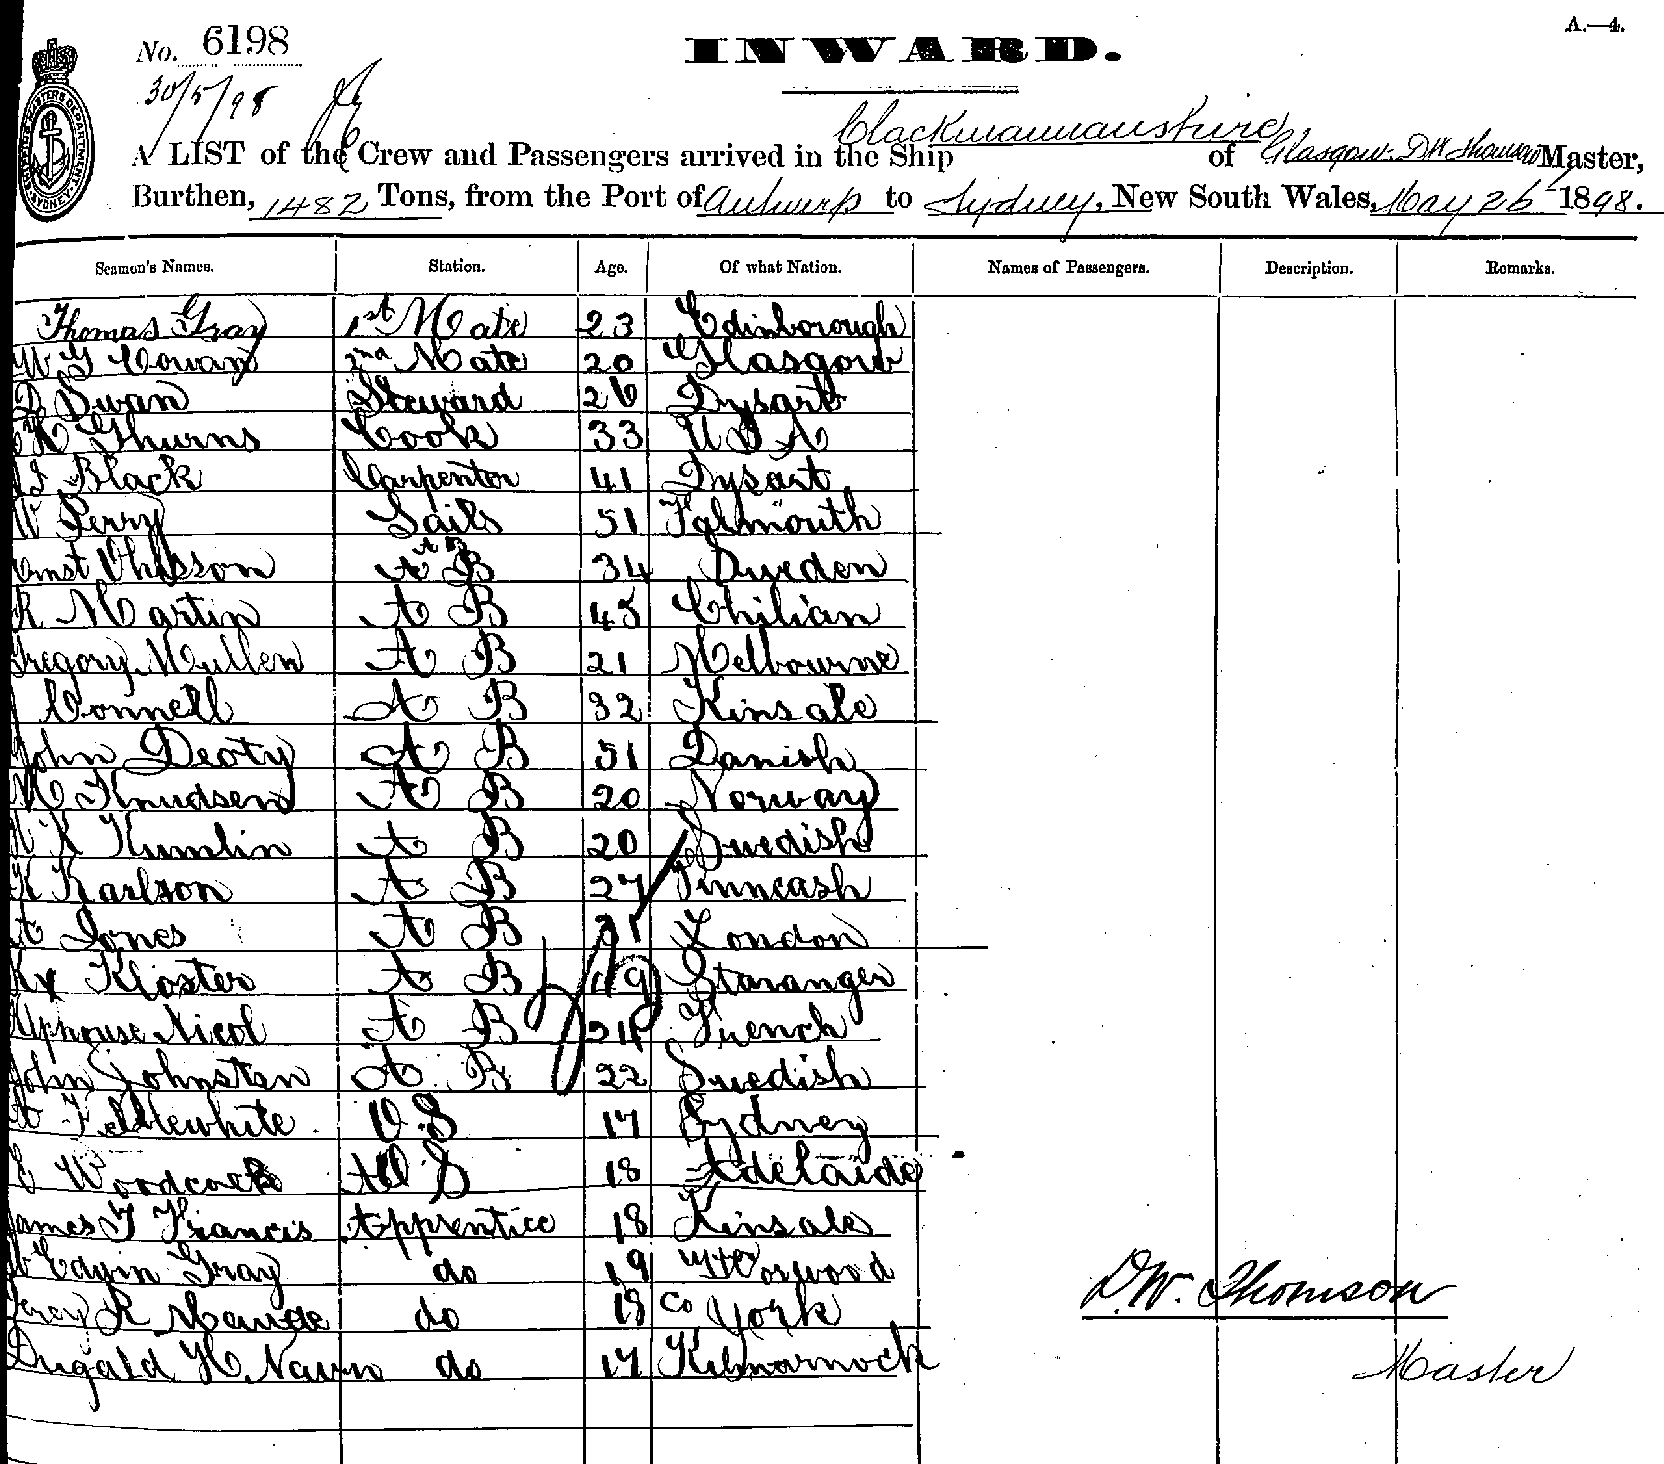 A.—4.
No. 6198
INWARD.
30/5/98
Clackmannanshire
A LIST of the Crew and Passengers arrived in the Ship of Glasgow. D W Master,
Burthen, 1482 Tons, from the Port of Antwerp to Sydney, New South Wales, May 26 1898.
Seamen's Names. Station. Age. Of what Nation. Names of Passengers. Description. Remarks.
Thomas Gray 1st Mate 23 Edinborough
W G Cowan 2nd Mate 20 Glasgow
D Swan Steward 26 Dysart
Cook 33 U S A
Black Carpenter 41 Dysart
W Perry Sails 51 Falmouth
Ohlsson A B 34 Sweden
R Martin A B 45 Chilian
Gregory Mullen A B 21 Melbourne
Connell A B 32 Kinsale
John Deoty A B 51 Danish
M Knudsen A B 20 Norway
K Kumlin A B 20 Swedish
K Karlson A B 27 Finneash
A Jones A B London
Kloster A B 19 Stavanger
Alphouse Nicol A B French
John Johnsten A B 22 Swedish
O.S 17 Sydney
E Woodcock O S 18 Adelaide
James T Francis Apprentice 18 Kinsale
Edgin Gray do 19 Norwood
Percy R Maude do 18 Co York
D. W. Thomson
Dugald H. Nairn do 17 Kilmarnock
Master